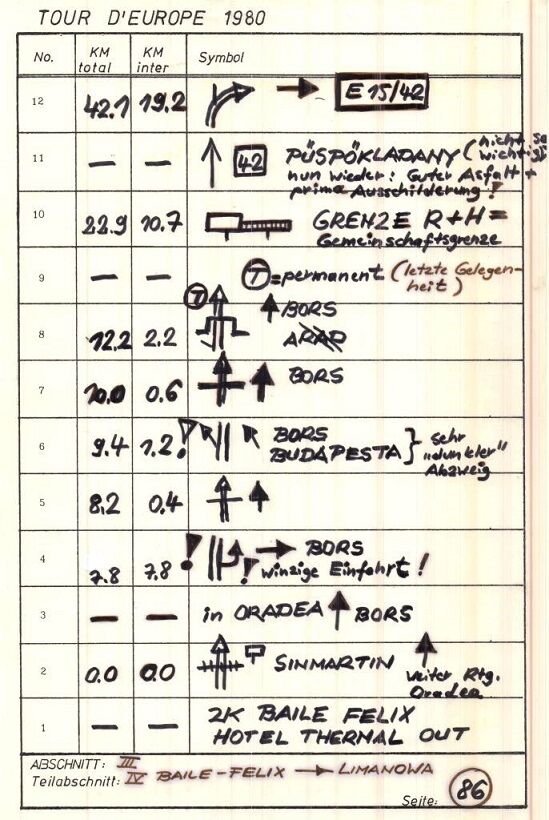 TOUR D'EUROPE 1980
No. KM total KM inter Symbol
12 42.1 19.2 E15/42
11 — — 42 PÜSPÖKLADANY (nicht so wichtig)
nun wieder: Guter Asfalt +
prima Ausschilderung!
10 22.9 10.7 GRENZE R+H =
Gemeinschaftsgrenze
9 — — T = permanent (letzte Gelegen-
heit)
T BORS
8 12.2 2.2 ARAD
7 10.0 0.6 BORS
6 9.4 1.2 ! BORS
BUDAPESTA } sehr
"dunkler"
Abzweig
5 8.2 0.4
4 7.8 7.8 ! BORS
! winzige Einfahrt!
3 — — in ORADEA BORS
2 0.0 0.0 SINMARTIN
weiter Rtg.
Oradea
1 — — 2K BAILE FELIX
HOTEL THERMAL OUT
ABSCHNITT: III
Teilabschnitt: IV BAILE-FELIX → LIMANOWA
Seite: 86